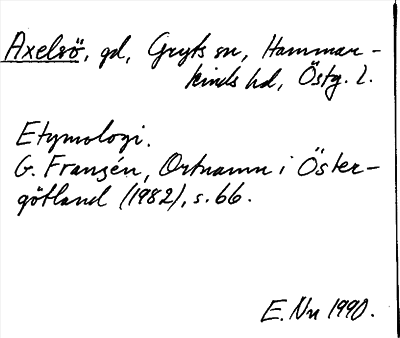 Axelsö, gd, Gryts sn, Hammar-
kinds hd, Östg. l.
Etymologi.
G. Franzén, Ortnamn i Öster-
götland (1982), s. 66.
E. Nn 1990.